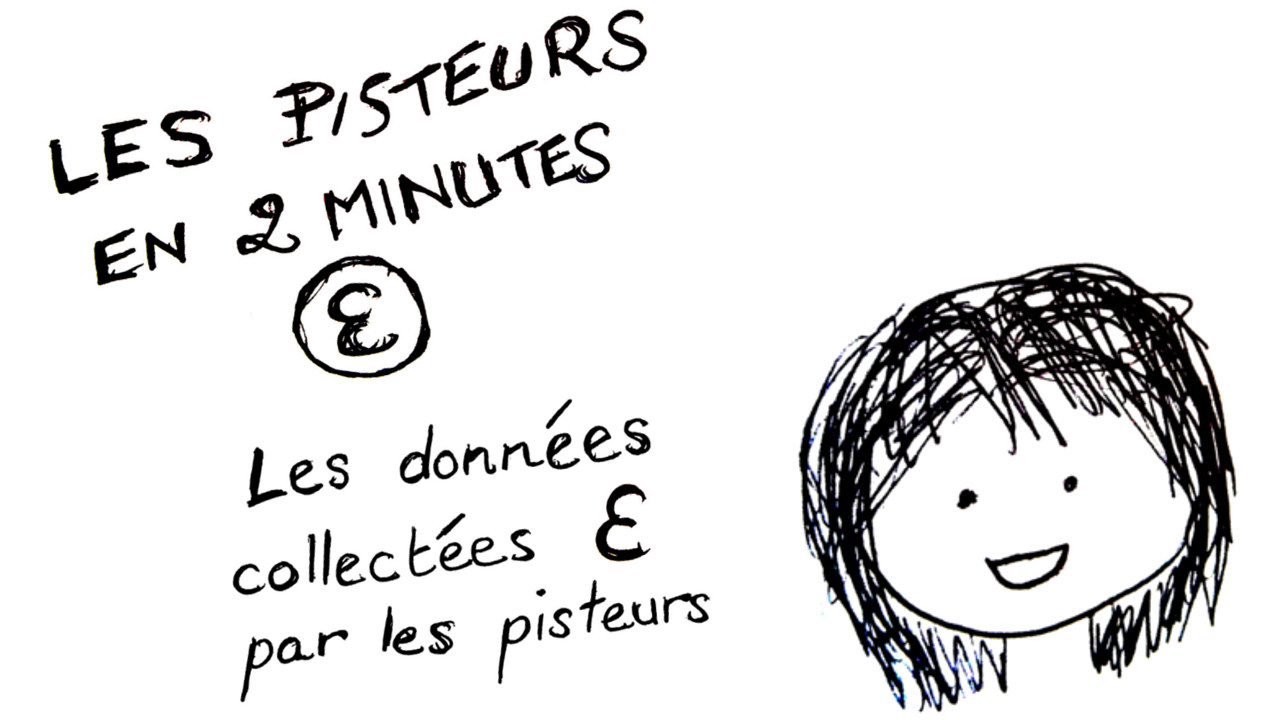 LES PISTEURS
EN 2 MINUTES
ε
Les données
collectées ε
par les pisteurs